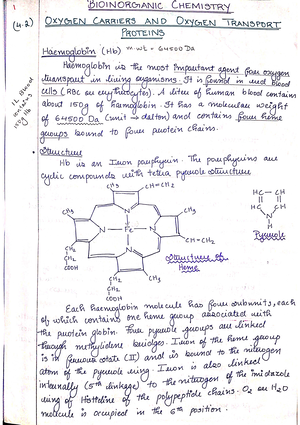 BIOINORGANIC CHEMISTRY
(4.2) OXYGEN CARRIERS AND OXYGEN TRANSPORT
PROTEINS
Haemoglobin (Hb) m.wt - 64500 Da
Haemoglobin is the most important agent for oxygen
transport in living organisms. It is found in red blood
cells (RBC or erythrocytes). A litre of human blood contains
about 150g of hamoglobin. It has a molecular weight
of 64500 Da (unit → dalton) and contains four heme
groups bound to four protein chains.
1L blood
contains
150g Hb
Structure
Hb is an Iron porphyrin. The porphyrins are
cyclic compounds with tetra pyrrole structure
CH3 CH=CH2
CH3 CH3
N
N Fe N
N
CH2 CH=CH2
CH2
COOH
CH2 CH3
CH2
COOH
HC CH
HC CH
N
H
Pyrrole
Structure of
Heme
Each haemoglobin molecule has four subunits, each
of which contains one heme group associated with
the protein globin. Four pyrrole groups are linked
through methylidene bridges. Iron of the heme group
is in ferrous state (II) and is bound to the nitrogen
atom of the pyrrole ring. Iron is also linked
internally (5th linkage) to the nitrogen of the imidazole
ring of Histidine of the polypeptide chains. O2 or H2O
molecule is occupied in the 6th position.